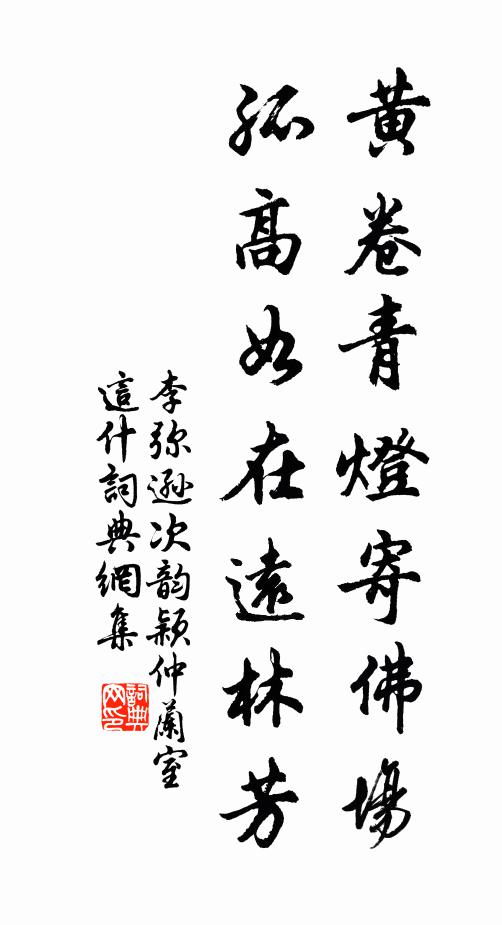 黃卷青燈寄佛場
孤高如在遠林芳
李弥遜次韵潁仲蘭室
這什詞典網集
詞典网印